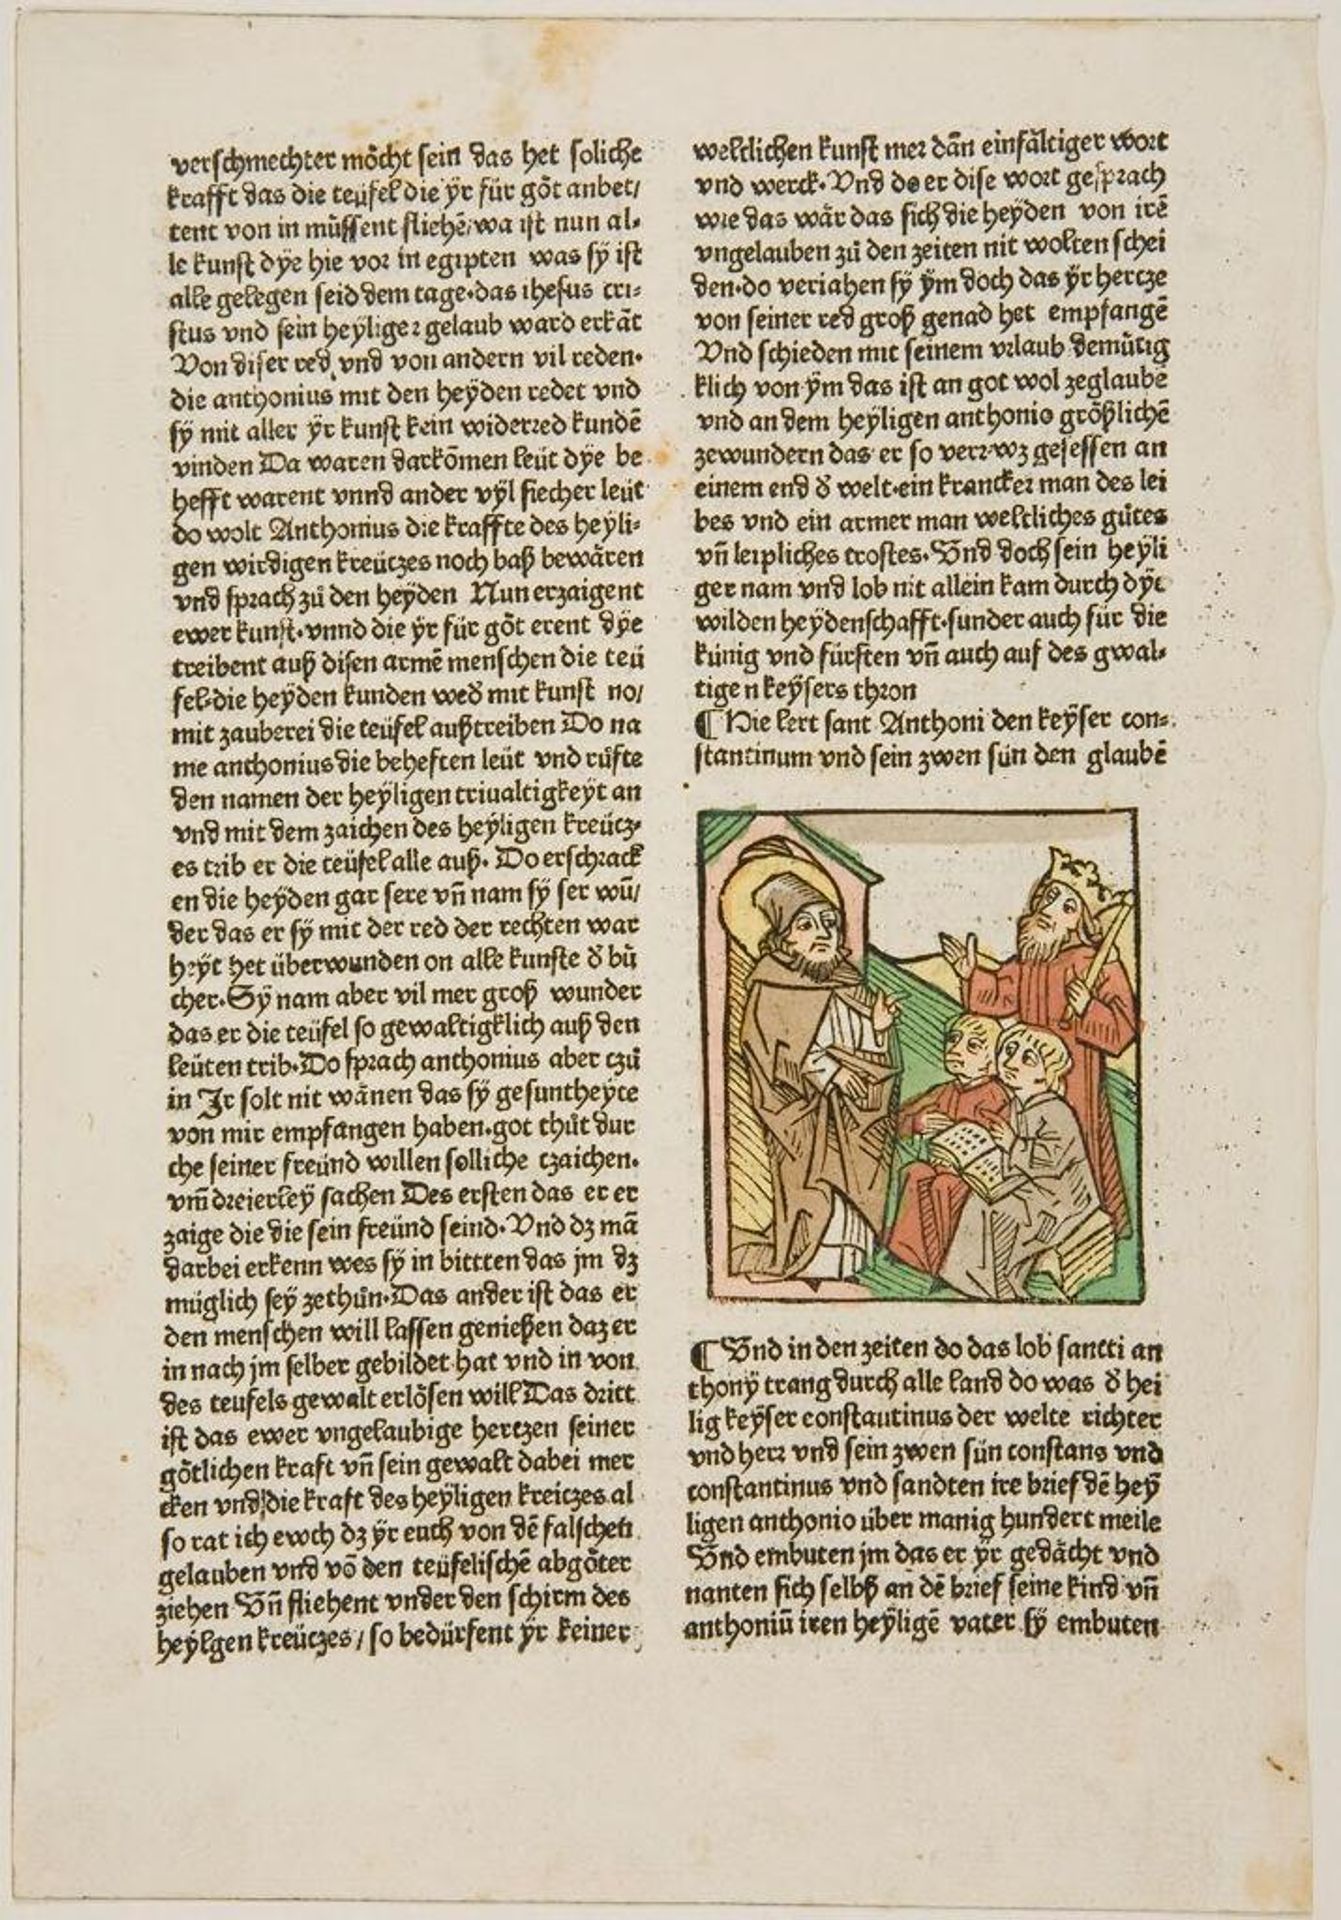 verschmechter möcht sein das het soliche
krafft das die teüfel die ÿr für göt anbet/
tent von in müssent fliehē/wa ist nun al⸗
le kunst dÿe hie vor in egipten was sÿ ist
alle gelegen seid dem tage·das ihesus cri⸗
stus vnd sein heÿliger gelaub ward erkāt
Von diser red vnd von andern vil reden·
die anthonius mit den heÿden redet vnd
sÿ mit aller ÿr kunst kein widerred kundē
vinden Da waren darkōmen leüt dÿe be
hefft warent vnnd ander vÿl siecher leüt
do wolt Anthonius die kraffte des heÿli⸗
gen wirdigen kreüczes noch baß bewären
vnd sprach zů den heÿden Nun erzaigent
ewer kunst·vnnd die ÿr für göt erent dÿe
treibent auß disen armē menschen die teü
fel·die heÿden kunden wed' mit kunst no/
mit zauberei die teüfel außtreiben Do na
me anthonius die beheften leüt vnd růfte
den namen der heÿligen triualtigkeÿt an
vnd mit dem zaichen des heÿligen kreücz⸗
es trib er die teüfel alle auß· Do erschrack
en die heÿden gar sere vn̄ nam sÿ ser wū/
der das er sÿ mit der red der rechten war
heÿt het überwunden on alle kunste d' bů
cher·Sÿ nam aber vil mer groß wunder
das er die teüfel so gewaltigklich auß den
leüten trib·Do sprach anthonius aber czů
in Ir solt nit wänen das sÿ gesuntheÿte
von mir empfangen haben·got thůt dur
che seiner freünd willen solliche czaichen·
vm̄ dreierleÿ sachen Des ersten das er er
zaige die die sein freünd seind·Vnd dz mā
darbei erkenn wes sÿ in bittten das jm dz
müglich seÿ zethůn·Das ander ist das er
den menschen will lassen genießen daz er
in nach jm selber gebildet hat vnd in von
des teufels gewalt erlösen will Das dritt
ist das ewer vngelaubige hertzen seiner
götlichen kraft vn̄ sein gewalt dabei mer
cken vnd die kraft des heÿligen kreiczes al
so rat ich ewch dz ÿr euch von dē falschen
gelauben vnd vō den teüfelischē abgöter
ziehen Vn̄ fliehent vnder den schirm des
heÿlgen kreüczes/so bedürfent ÿr keiner
weltlichen kunst mer dān einfältiger wort
vnd werck·Vnd do er dise wort gesprach
wie das wär das sich die heÿden von irē
vngelauben zů den zeiten nit wolten schei
den·do veriahen sÿ ÿm doch das ÿr hertze
von seiner red groß genad het empfangē
Vnd schieden mit seinem vrlaub demütig
klich von ÿm das ist an got wol zeglaubē
vnd an dem heÿligen anthonio größlichē
zewundern das er so verr wz gesessen an
einem end d' welt·ein krancker man des lei
bes vnd ein armer man weltliches gütes
vn̄ leipliches trostes·Vnd doch sein heÿli
ger nam vnd lob nit allein kam durch dÿe
wilden heÿdenschafft·sunder auch für die
künig vnd fürsten vn̄ auch auf des gwal⸗
tigen keÿsers thron
¶ Hie lert sant Anthoni den keÿser con⸗
stantinum vnd sein zwen sün den glaubē
¶ Vnd in den zeiten do das lob sancti an
thonÿ trang durch alle land do was d' hei
lig keÿser constantinus der welte richter
vnd herr vnd sein zwen sün constans vnd
constantinus vnd sandten ire brief dē heÿ
ligen anthonio über manig hundert meile
Vnd embuten jm das er ÿr gedächt vnd
nanten sich selbß an dē brief seine kind vn̄
anthoniū iren heÿligē vater sÿ embuten